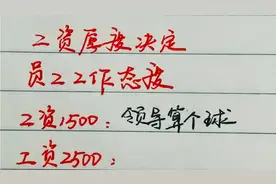 工资厚度决定
员工工作态度
工资1500：领导算个球
工资2500：